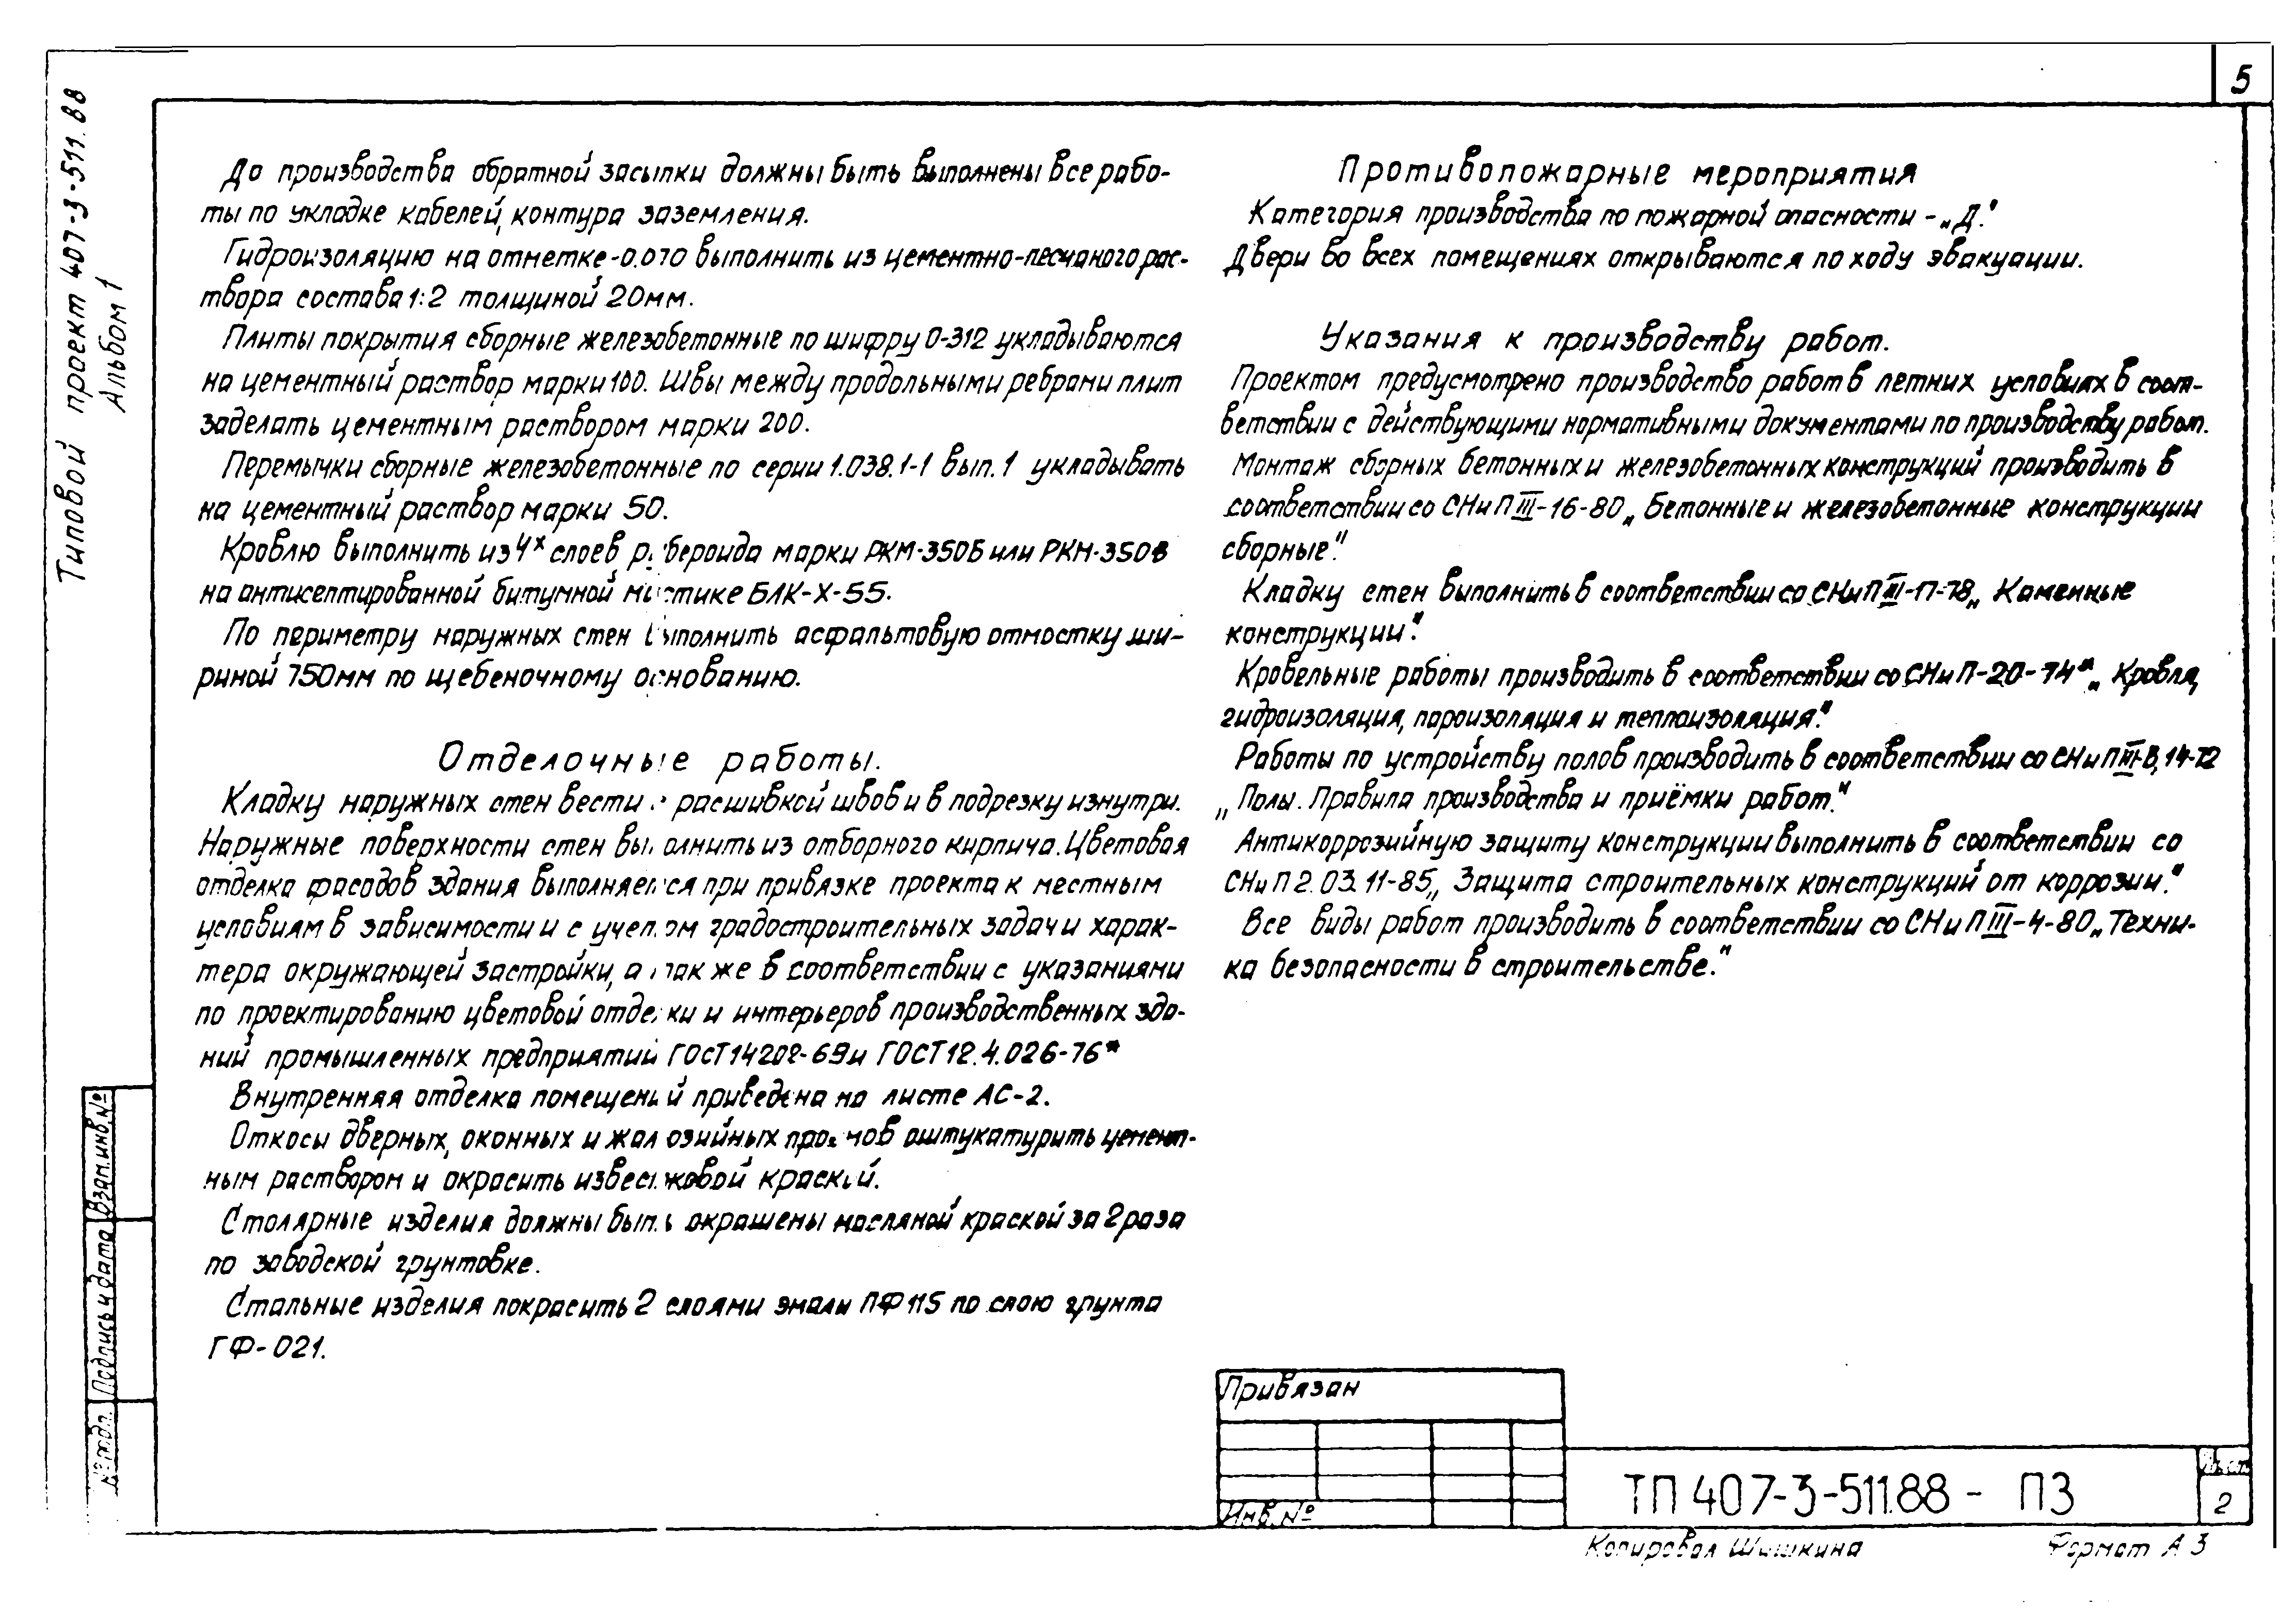 5
Типовой проект 407-3-511.88
Альбом 1
До производства обратной засыпки должны быть выполнены все рабо-
ты по укладке кабелей, контура заземления.
Гидроизоляцию на отметке -0.070 выполнить из цементно-песчаного рас-
твора состава 1:2 толщиной 20мм.
Плиты покрытия сборные железобетонные по шифру 0-312 укладываются
на цементный раствор марки 100. Швы между продольными ребрами плит
заделать цементным раствором марки 200.
Перемычки сборные железобетонные по серии 1.038.1-1 вып. 1 укладывать
на цементный раствор марки 50.
Кровлю выполнить из 4х слоев рубероида марки РКМ-350Б или РКМ-350В
на антисептированной битумной мастике БЛК-Х-55.
По периметру наружных стен выполнить асфальтовую отмостку ши-
риной 750мм по щебеночному основанию.
Отделочные работы.
Кладку наружных стен вести с расшивкой швов и в подрезку изнутри.
Наружные поверхности стен выполнить из отборного кирпича. Цветовая
отделка фасадов здания выполняется при привязке проекта к местным
условиям в зависимости и с учетом градостроительных задач и харак-
тера окружающей застройки, а так же в соответствии с указаниями
по проектированию цветовой отделки и интерьеров производственных зда-
ний промышленных предприятий ГОСТ 14202-69 и ГОСТ 12.4.026-76*
Внутренняя отделка помещений приведена на листе АС-2.
Откосы дверных, оконных и жалюзийных проемов оштукатурить цемент-
ным раствором и окрасить известковой краской.
Столярные изделия должны быть окрашены масляной краской за 2 раза
по заводской грунтовке.
Стальные изделия покрасить 2 слоями эмали ПФ 115 по слою грунта
ГФ-021.
Противопожарные мероприятия
Категория производства по пожарной опасности - „Д".
Двери во всех помещениях открываются по ходу эвакуации.
Указания к производству работ.
Проектом предусмотрено производство работ в летних условиях в соот-
ветствии с действующими нормативными документами по производству работ.
Монтаж сборных бетонных и железобетонных конструкций производить в
соответствии со СНиП III-16-80 „Бетонные и железобетонные конструкции
сборные".
Кладку стен выполнить в соответствии со СНиП III-17-78 „Каменные
конструкции".
Кровельные работы производить в соответствии со СНиП-20-74* „Кровля,
гидроизоляция, пароизоляция и теплоизоляция".
Работы по устройству полов производить в соответствии со СНиП III-В,14-72
„Полы. Правила производства и приёмки работ."
Антикоррозийную защиту конструкции выполнить в соответствии со
СНиП 2.03.11-85 „Защита строительных конструкций от коррозии."
Все виды работ производить в соответствии со СНиП III-4-80 „Техни-
ка безопасности в строительстве."
Взам.инв.№
Подпись и дата
№ подл.
Привязан
Инв.№
ТП 407-3-511.88 - ПЗ
Лист
2
Копировал Шишкина
Формат А3